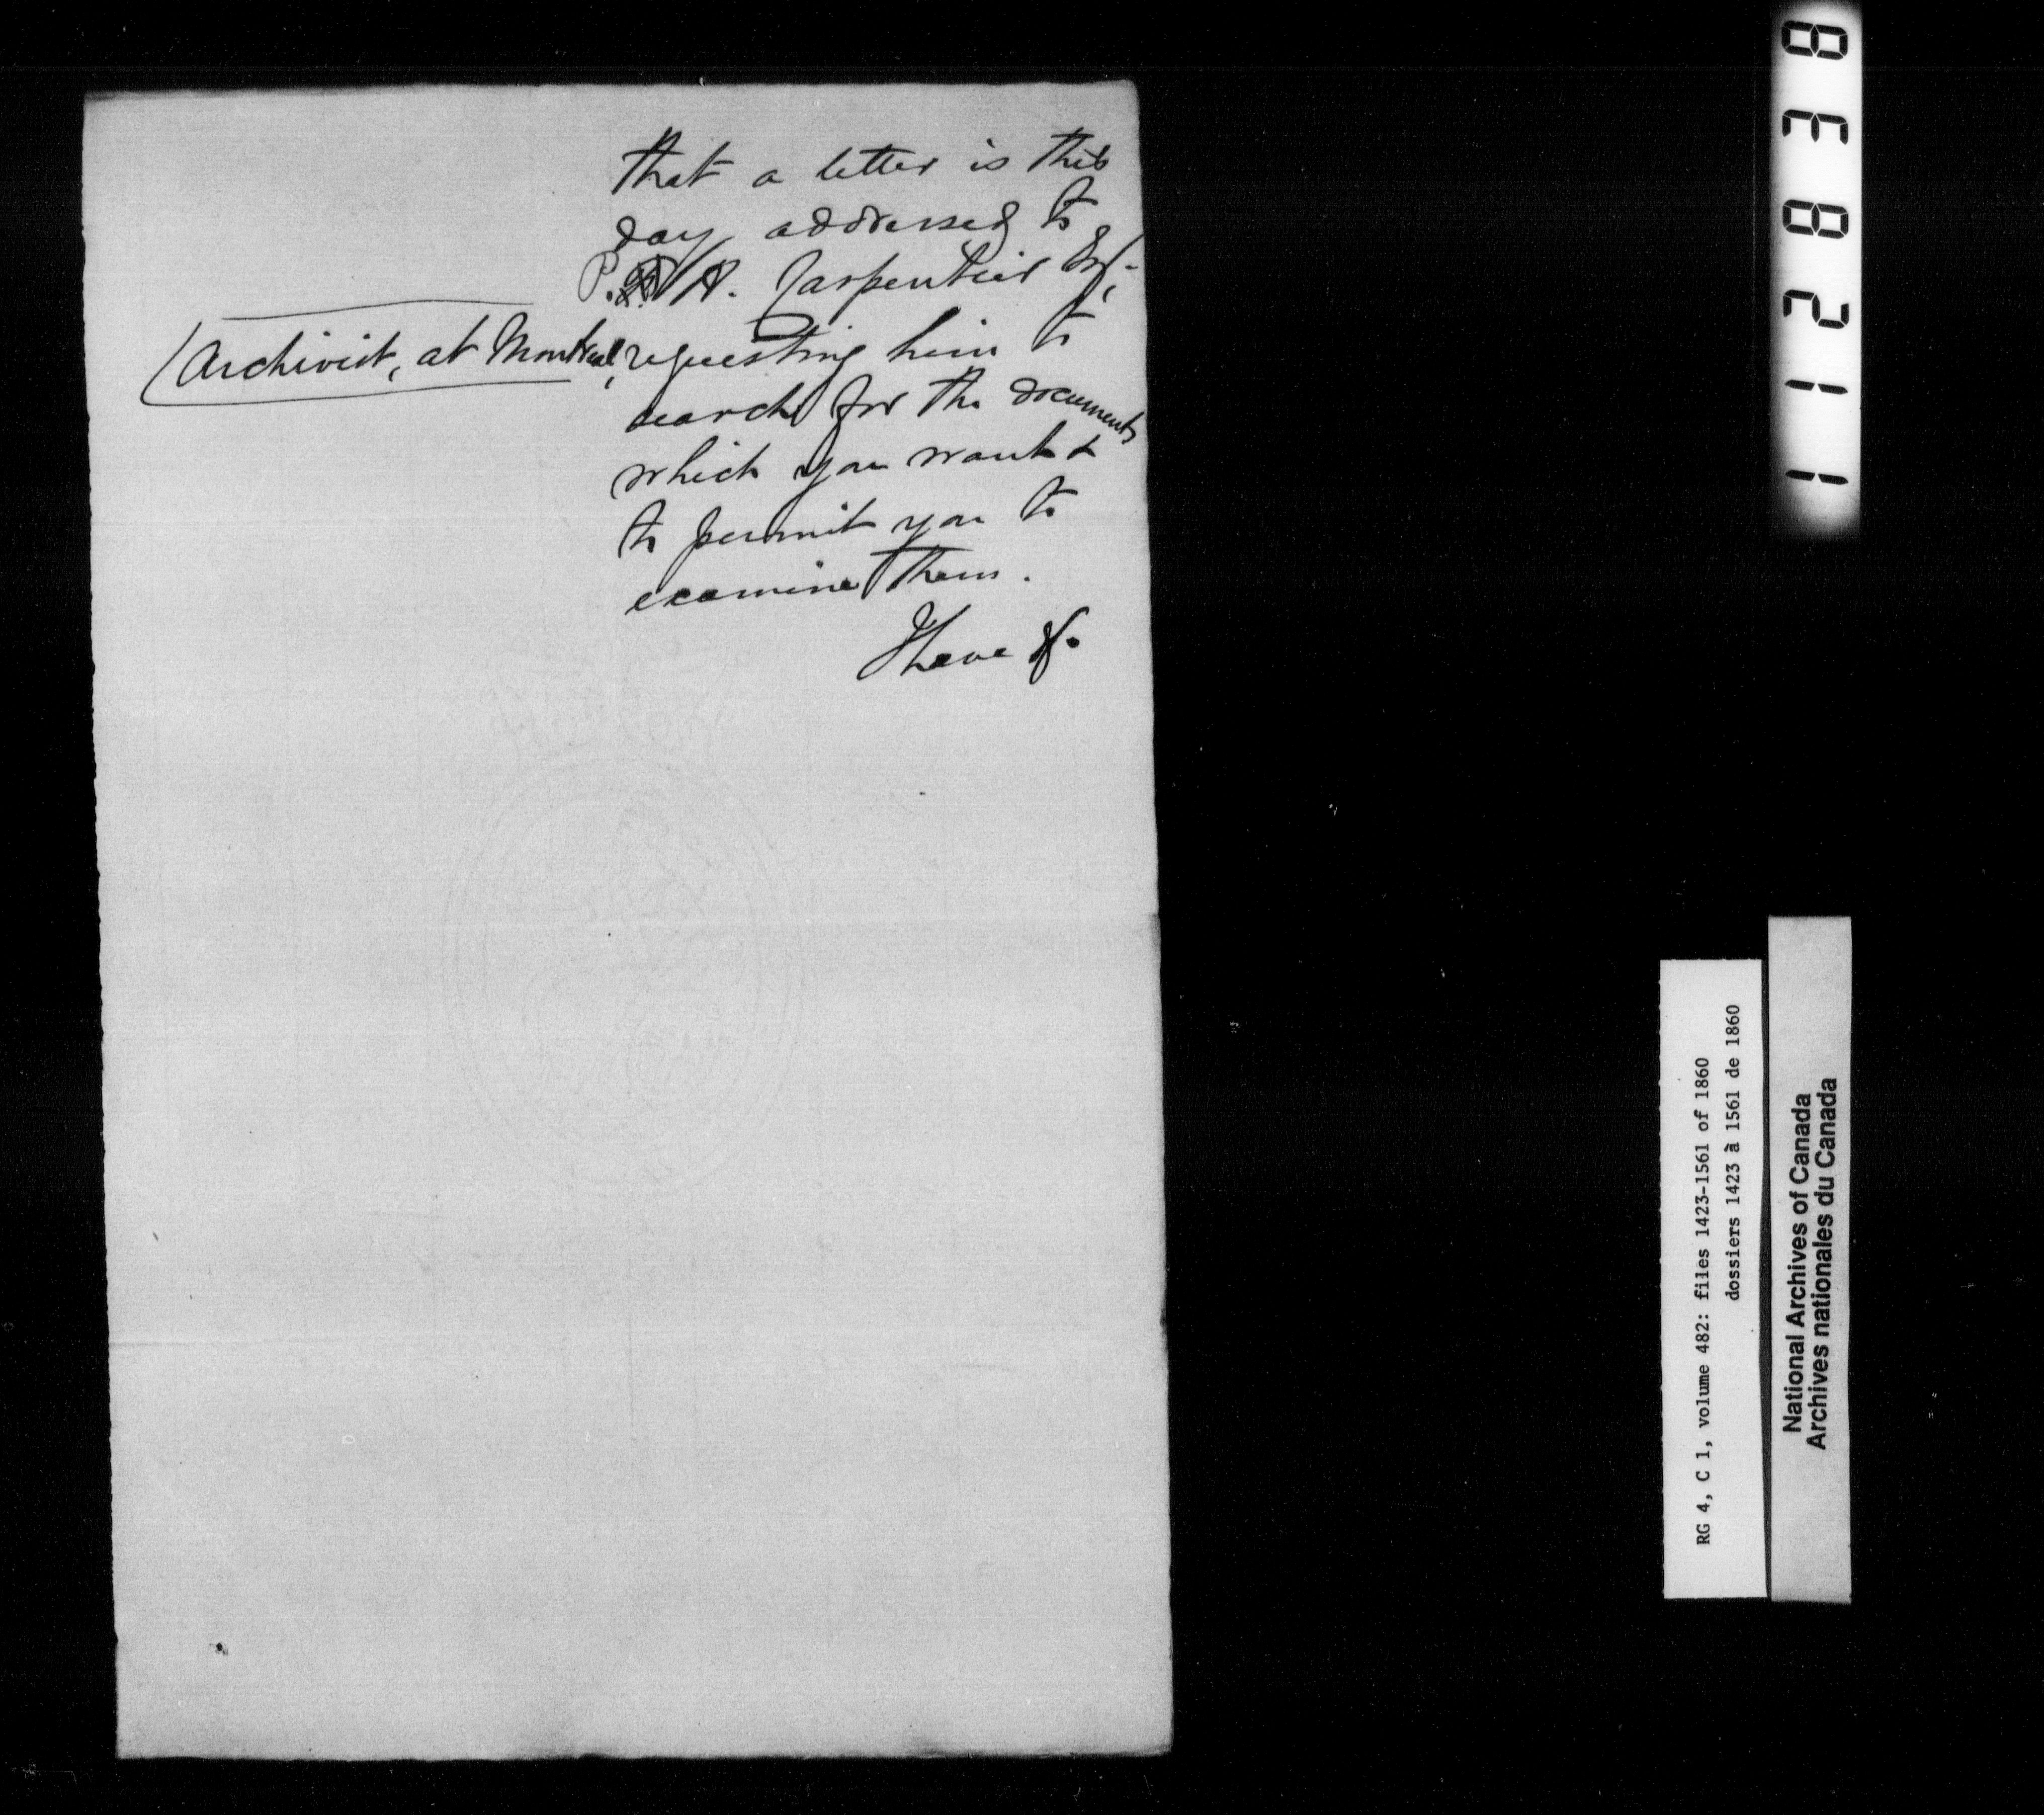 that a letter is this
day addressed to
P. A. Carpentier Esq,
(Archivist, at Montreal,
requesting him to
search for the documents
which you want &
to permit you to
examine them.
I have &c.
112838
RG 4, C 1, volume 482: files 1423-1561 of 1860
dossiers 1423 à 1561 de 1860
National Archives of Canada
Archives nationales du Canada